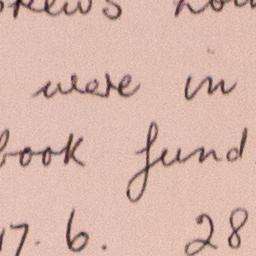 were in
book fund
17. 6. 28